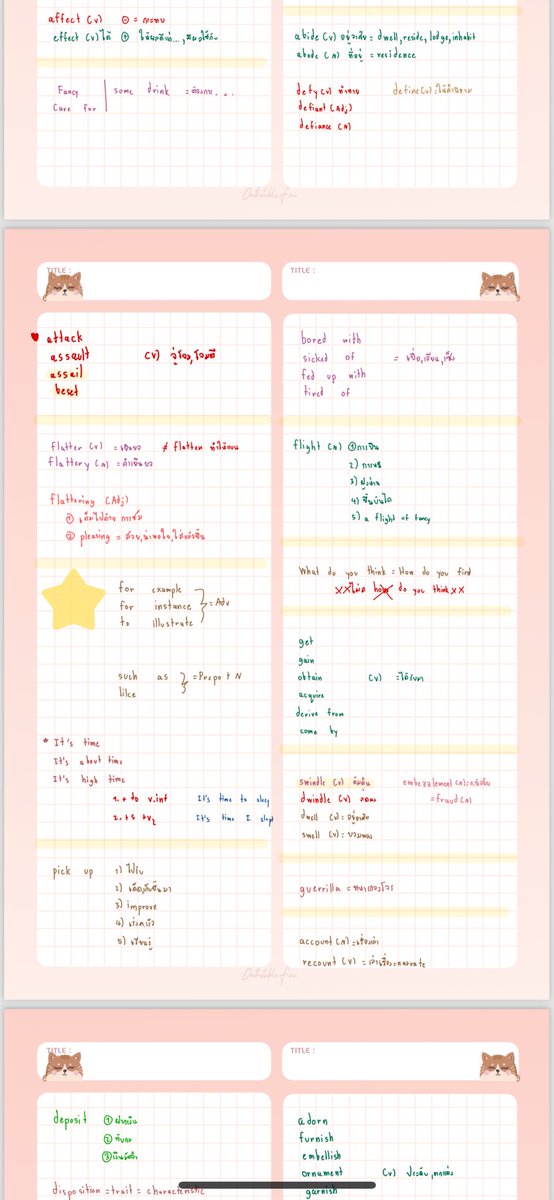 affect (v) ⊖ = กระทบ
effect (v) ได้ ⊕ ให้ผลดีแก่...,มีผลใช้กับ
Fancy some drink = ต้องการ...
Care for
abide (v) อยู่อาศัย = dwell, reside, lodge, inhabit
abode (n) ที่อยู่ = residence
defy (v) ท้าทาย define (v) = ให้คำนิยาม
defiant (Adj)
defiance (n)
TITLE :
♥ attack
assault (v) จู่โจม, โจมตี
assail
beset
flatter (v) = เยินยอ ≠ flatten ทำให้แบน
flattery (n) = คำเยินยอ
flattering (Adj)
① เต็มไปด้วย การชม
② pleasing = สวย, น่าพอใจ, ใส่แล้วขึ้น
for example
for instance = Adv
to illustrate
such as = Prepo + N
like
* It's time
It's about time
It's high time
1. + to v.inf It's time to sleep
2. + S + V2 It's time I slept
pick up 1) ไปรับ
2) เก็บขึ้นมา
3) improve
4) เร่งเครื่อง
5) เรียนรู้
TITLE :
bored with
sicked of = เบื่อ, เอียน, เซ็ง
fed up with
tired of
flight (n) ① การบิน
2) การหนี
3) ฝูง
4) ขั้นบันได
5) a flight of fancy
What do you think = How do you find
XX ไม่ใช่ how do you think XX
get
gain
obtain (v) = ได้รับมา
acquire
derive from
come by
swindle (v) ต้มตุ๋น embezzlement (n) =
dwindle (v) ลดลง = fraud (n)
dwell (v) : อยู่อาศัย
swell (v) : บวมพอง
guerrilla = ทหารกองโจร
account (n) = เรื่องเล่า
recount (v) = เล่าเรื่อง = narrate
TITLE :
deposit ① ฝากเงิน
② ทับถม
③ เงินมัดจำ
disposition = trait = characteristic
TITLE :
adorn
furnish
embellish
ornament (v) ประดับ, ตกแต่ง
garnish